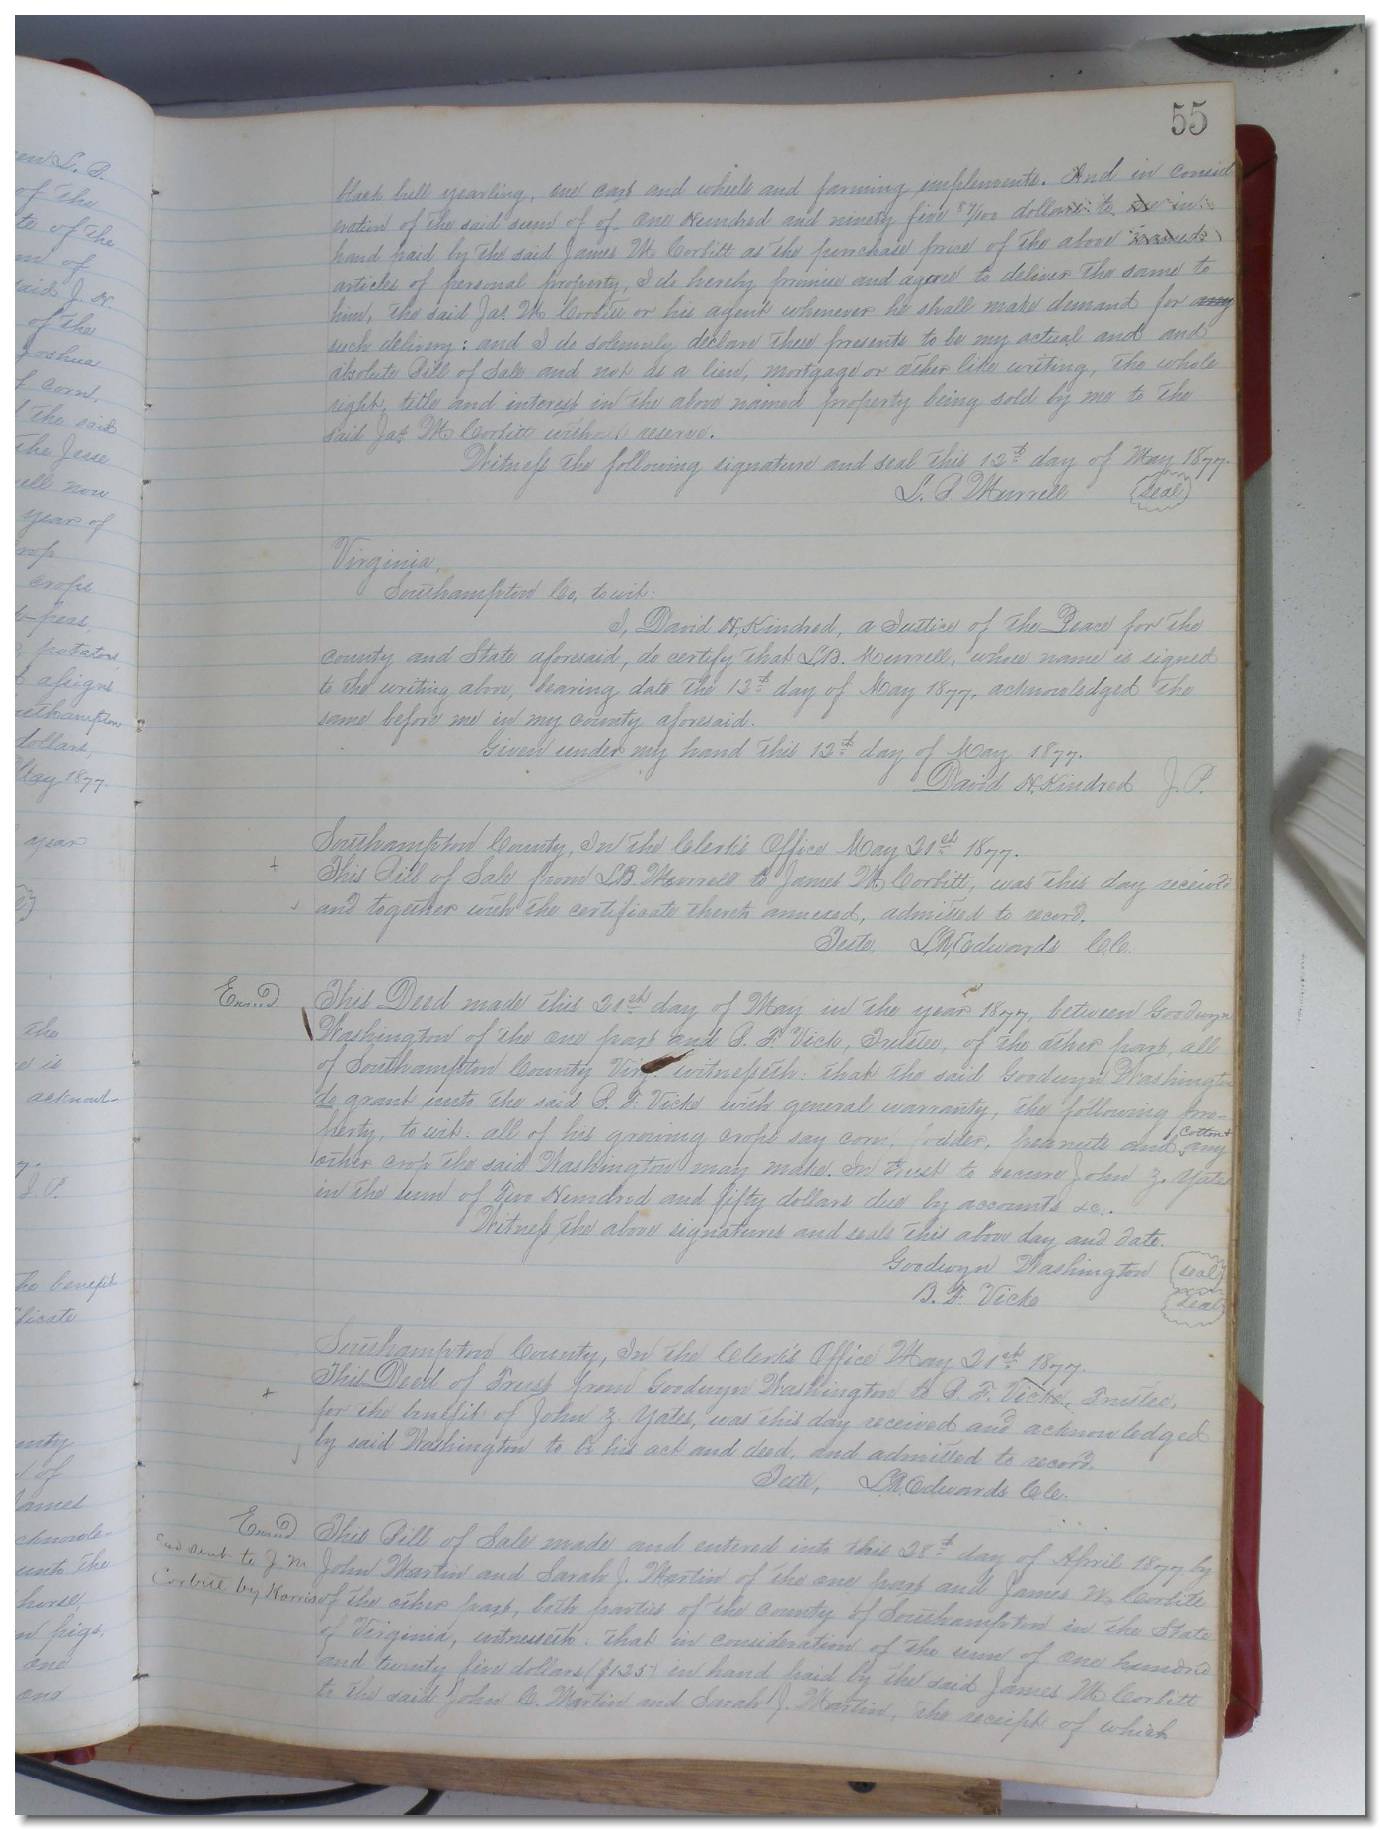 55
black bull yearling, one cart and wheels and farming implements. And in consid
eration of the said sum of of One Hundred and ninety five 87/100 dollars to me in
hand paid by the said James M. Corbitt as the purchase price of the above
articles of personal property, I do hereby promise and agree to deliver the same to
him, the said Jas. M. Corbitt or his agent whenever he shall make demand for any
such delivery: and I do solemnly declare these presents to be my actual and and
absolute Bill of Sale and not as a lien, mortgage or other like writing, the whole
right, title and interest in the above named property being sold by me to the
said Jas. M. Corbitt without reserve.
Witness the following signature and seal this 12th day of May 1877.
L. B. Murrell (seal)
Virginia,
Southampton Co, to wit:
I, David N. Kindred, a Justice of the Peace for the
County and State aforesaid, do certify that L.B. Murrell, whose name is signed
to the writing above, bearing date the 12th day of May 1877, acknowledged the
same before me in my county aforesaid.
Given under my hand this 12th day of May 1877.
David N. Kindred J. P.
Southampton County, In the Clerk's Office May 21st 1877.
This Bill of Sale from L.B Murrell to James M. Corbitt, was this day received
and together with the certificate thereto annexed, admitted to record.
Teste. L.R. Edwards C.C.
Exmd
This Deed made this 21st day of May in the year 1877, between Goodwyn
Washington of the one part and B. F. Vick, Trustee, of the other part, all
of Southampton County Virg. witnesseth: that the said Goodwyn Washington
do grant unto the said B. F. Vicks with general warranty, the following pro-
perty, to wit: all of his growing crops say corn, fodder, peanuts and cotton & any
other crop the said Washington may make. In trust to secure John Z. Yates
in the sum of Two Hundred and fifty dollars due by accounts &c.
Witness the above signatures and seals this above day and date.
Goodwyn Washington (seal)
B. F. Vicks (seal)
Southampton County, In the Clerk's Office May 21st 1877.
This Deed of Trust from Goodwyn Washington to B. F. Vicks, Trustee,
for the benefit of John Z. Yates, was this day received and acknowledged
by said Washington to be his act and deed, and admitted to record.
Teste, L.R. Edwards C.C.
Exmd
and sent to J. M.
Corbitt by Norris
This Bill of Sale made and entered into this 28th day of April 1877 by
John Martin and Sarah J. Martin of the one part and James M. Corbitt
of the other part, both parties of the County of Southampton in the State
of Virginia, witnesseth: that in consideration of the sum of one hundred
and twenty five dollars ($125) in hand paid by the said James M. Corbitt
to the said John C. Martin and Sarah J. Martin, the receipt of which